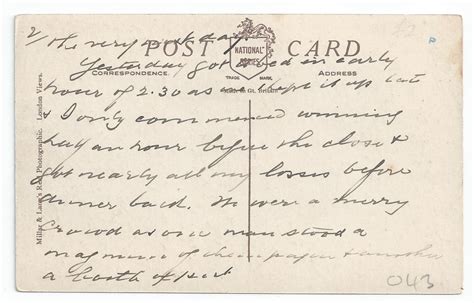 2/ the very next day.
POST CARD
NATIONAL SERIES
TRADE MARK
CORRESPONDENCE. ADDRESS
Made in Gt. Britain
Yesterday got in early
hour of 2.30 as kept it up late
& I only commenced winning
half an hour before the close &
got nearly all my losses before
dinner back. We were a merry
crowd as one man stood a
magnum of champagne & another
a bottle of
Millar & Lang's Real Photographic. London Views.
043